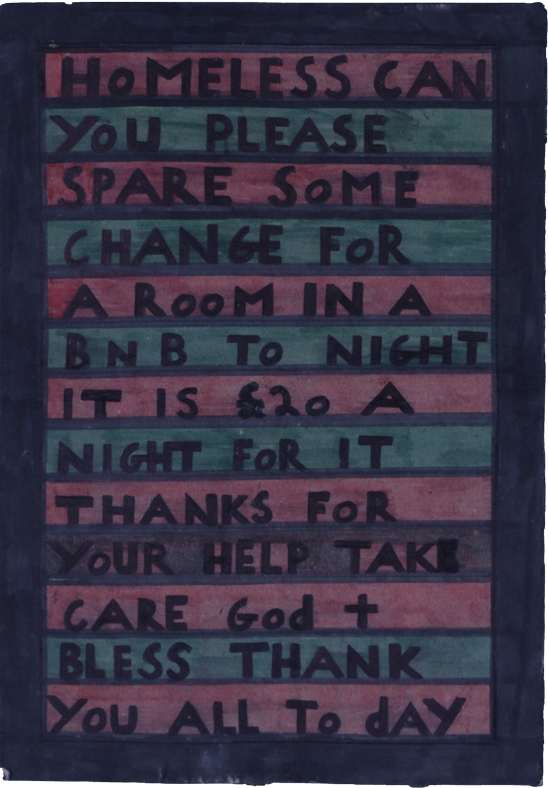 HoMELESS CAN
YoU PLEASE
SPARE SoME
CHANGE FoR
A RooM IN A
BNB To NIGHT
IT IS £20 A
NIGHT FoR IT
THANKS FoR
YoUR HELP TAKE
CARE God †
BLESS THANK
YoU ALL To dAY